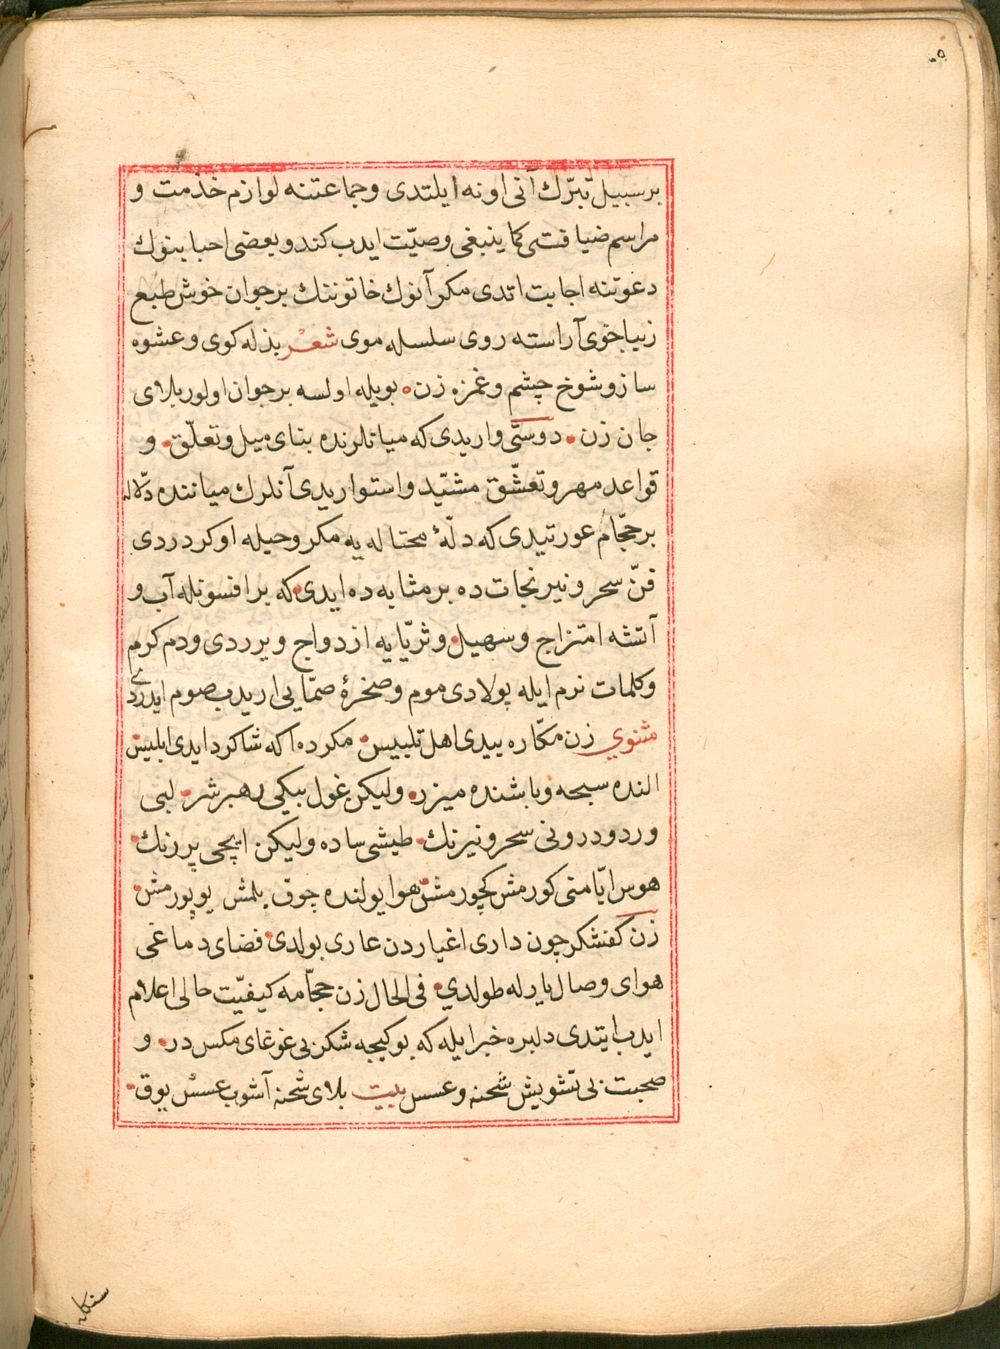 بر سبیل تبرّك آنی اونه ایلتدی وجماعتنه لوازم خذمت و
مراسم ضیافتی کما ینبغی وصیّت ایدب کندو بعضی احبابنوك
دعوتنه اجابت اتدی مکر آنوك خاتوننك بر جوان خوش طبع
زیبا خوی آراسته روی سلسله موی شعر بذله کوی وعشوه
ساز وشوخ چشم وغمزه زن بویله اولسه بر جوان اولور بلای
جان زن دوستی واریدی که میانلرنده بنای میل وتعلّق و
قواعد مهر وتعشّق مشیّد واستواریدی آنلرك میاننده دلّاله
بر حجّام عورتیدی که دلّهٔ محتاله یه مکر وحیله اوکردردی
فنّ سحر ونیرنجات ده بر مثابه ده ایدی که بر افسونله آب و
آتشه امتزاج وسهیل وثریّایه ازدواج ویرردی ودم کرم
وکلمات نرم ایله پولادی موم وصخرهٔ صمّایی اریدب صوم ایدردی
مثنوی زن مکّاره بیدی اهل تلبیس مکرده اکه شاکرد ایدی ابلیس
النده سبحه وباشنده میزر ولیکن غول بیکی رهبر شر لبی
وردودرونی سحر ونیرنك طیشی ساده ولیکن ایچی پر زنك
هوس ایّامنی کورمش کچورمش هوا یولنده چوق یلمش یوپورمش
زن کفشکر چون داری اغیاردن عاری بولدی فضای دماغی
هوای وصال یارله طولدی فی الحال زن حجّامه کیفیّت حالی اعلام
ایدب ایتدی دلبره خبر ایله که بو کیجه شکن بی غوغای مکس در و
صحبت بی تشویش شحنه وعسس بیت بلای شحنه آشوب عسس یوق